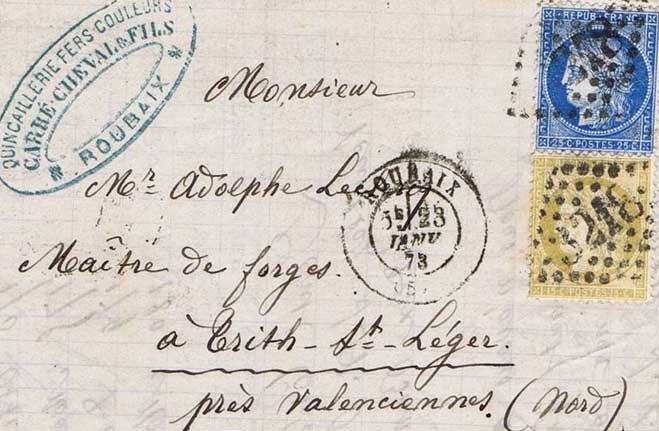 QUINCAILLERIE FERS COULEURS
CARRÉ-CHEVAL & FILS
* ROUBAIX *
REPUB FRANC
25 C POSTES 25 C
15 C POSTES 15 C
3218
Monsieur
Mr Adolphe
ROUBAIX
23
JANV
73
Maître de forges.
à Trith-St-Léger.
près Valenciennes. (Nord)